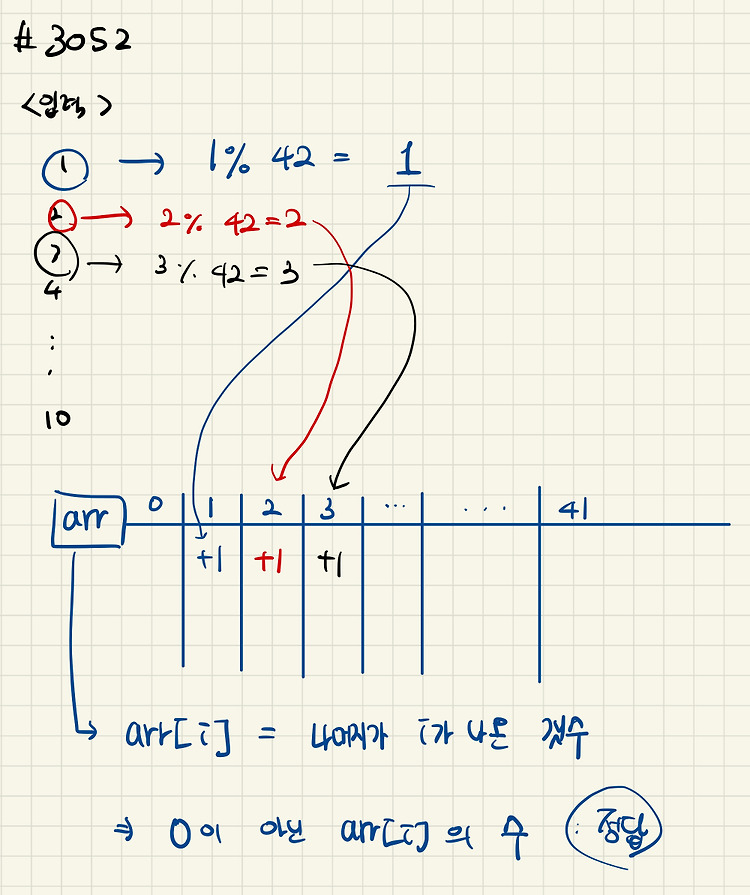 # 3052
<입력>
1 → 1% 42 = 1
2 → 2% 42=2
3 → 3% 42=3
4
:
.
10
arr 0 1 2 3 ... ... 41
+1 +1 +1
arr[i] = 나머지가 i가 나온 갯수
⇒ 0이 아닌 arr[i]의 수 : 정답